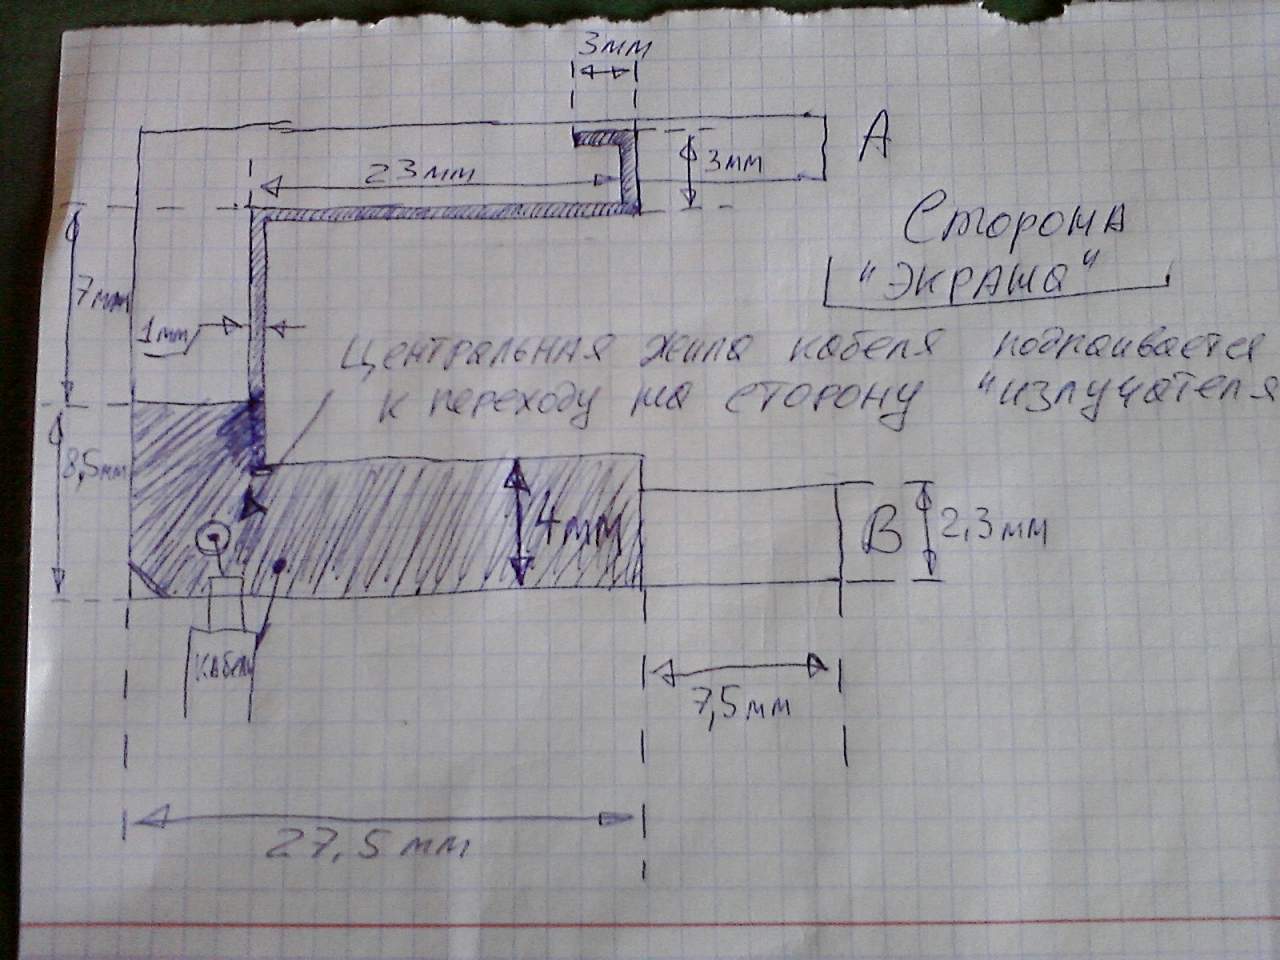 3мм
А
23мм
3мм
Сторона
"ЭКРАНа"
7мм
1мм
Центральная жила кабеля подпаивается
к переходу на сторону "излучателя
8,5мм
4мм
В
2,3мм
кабель
7,5мм
27,5мм